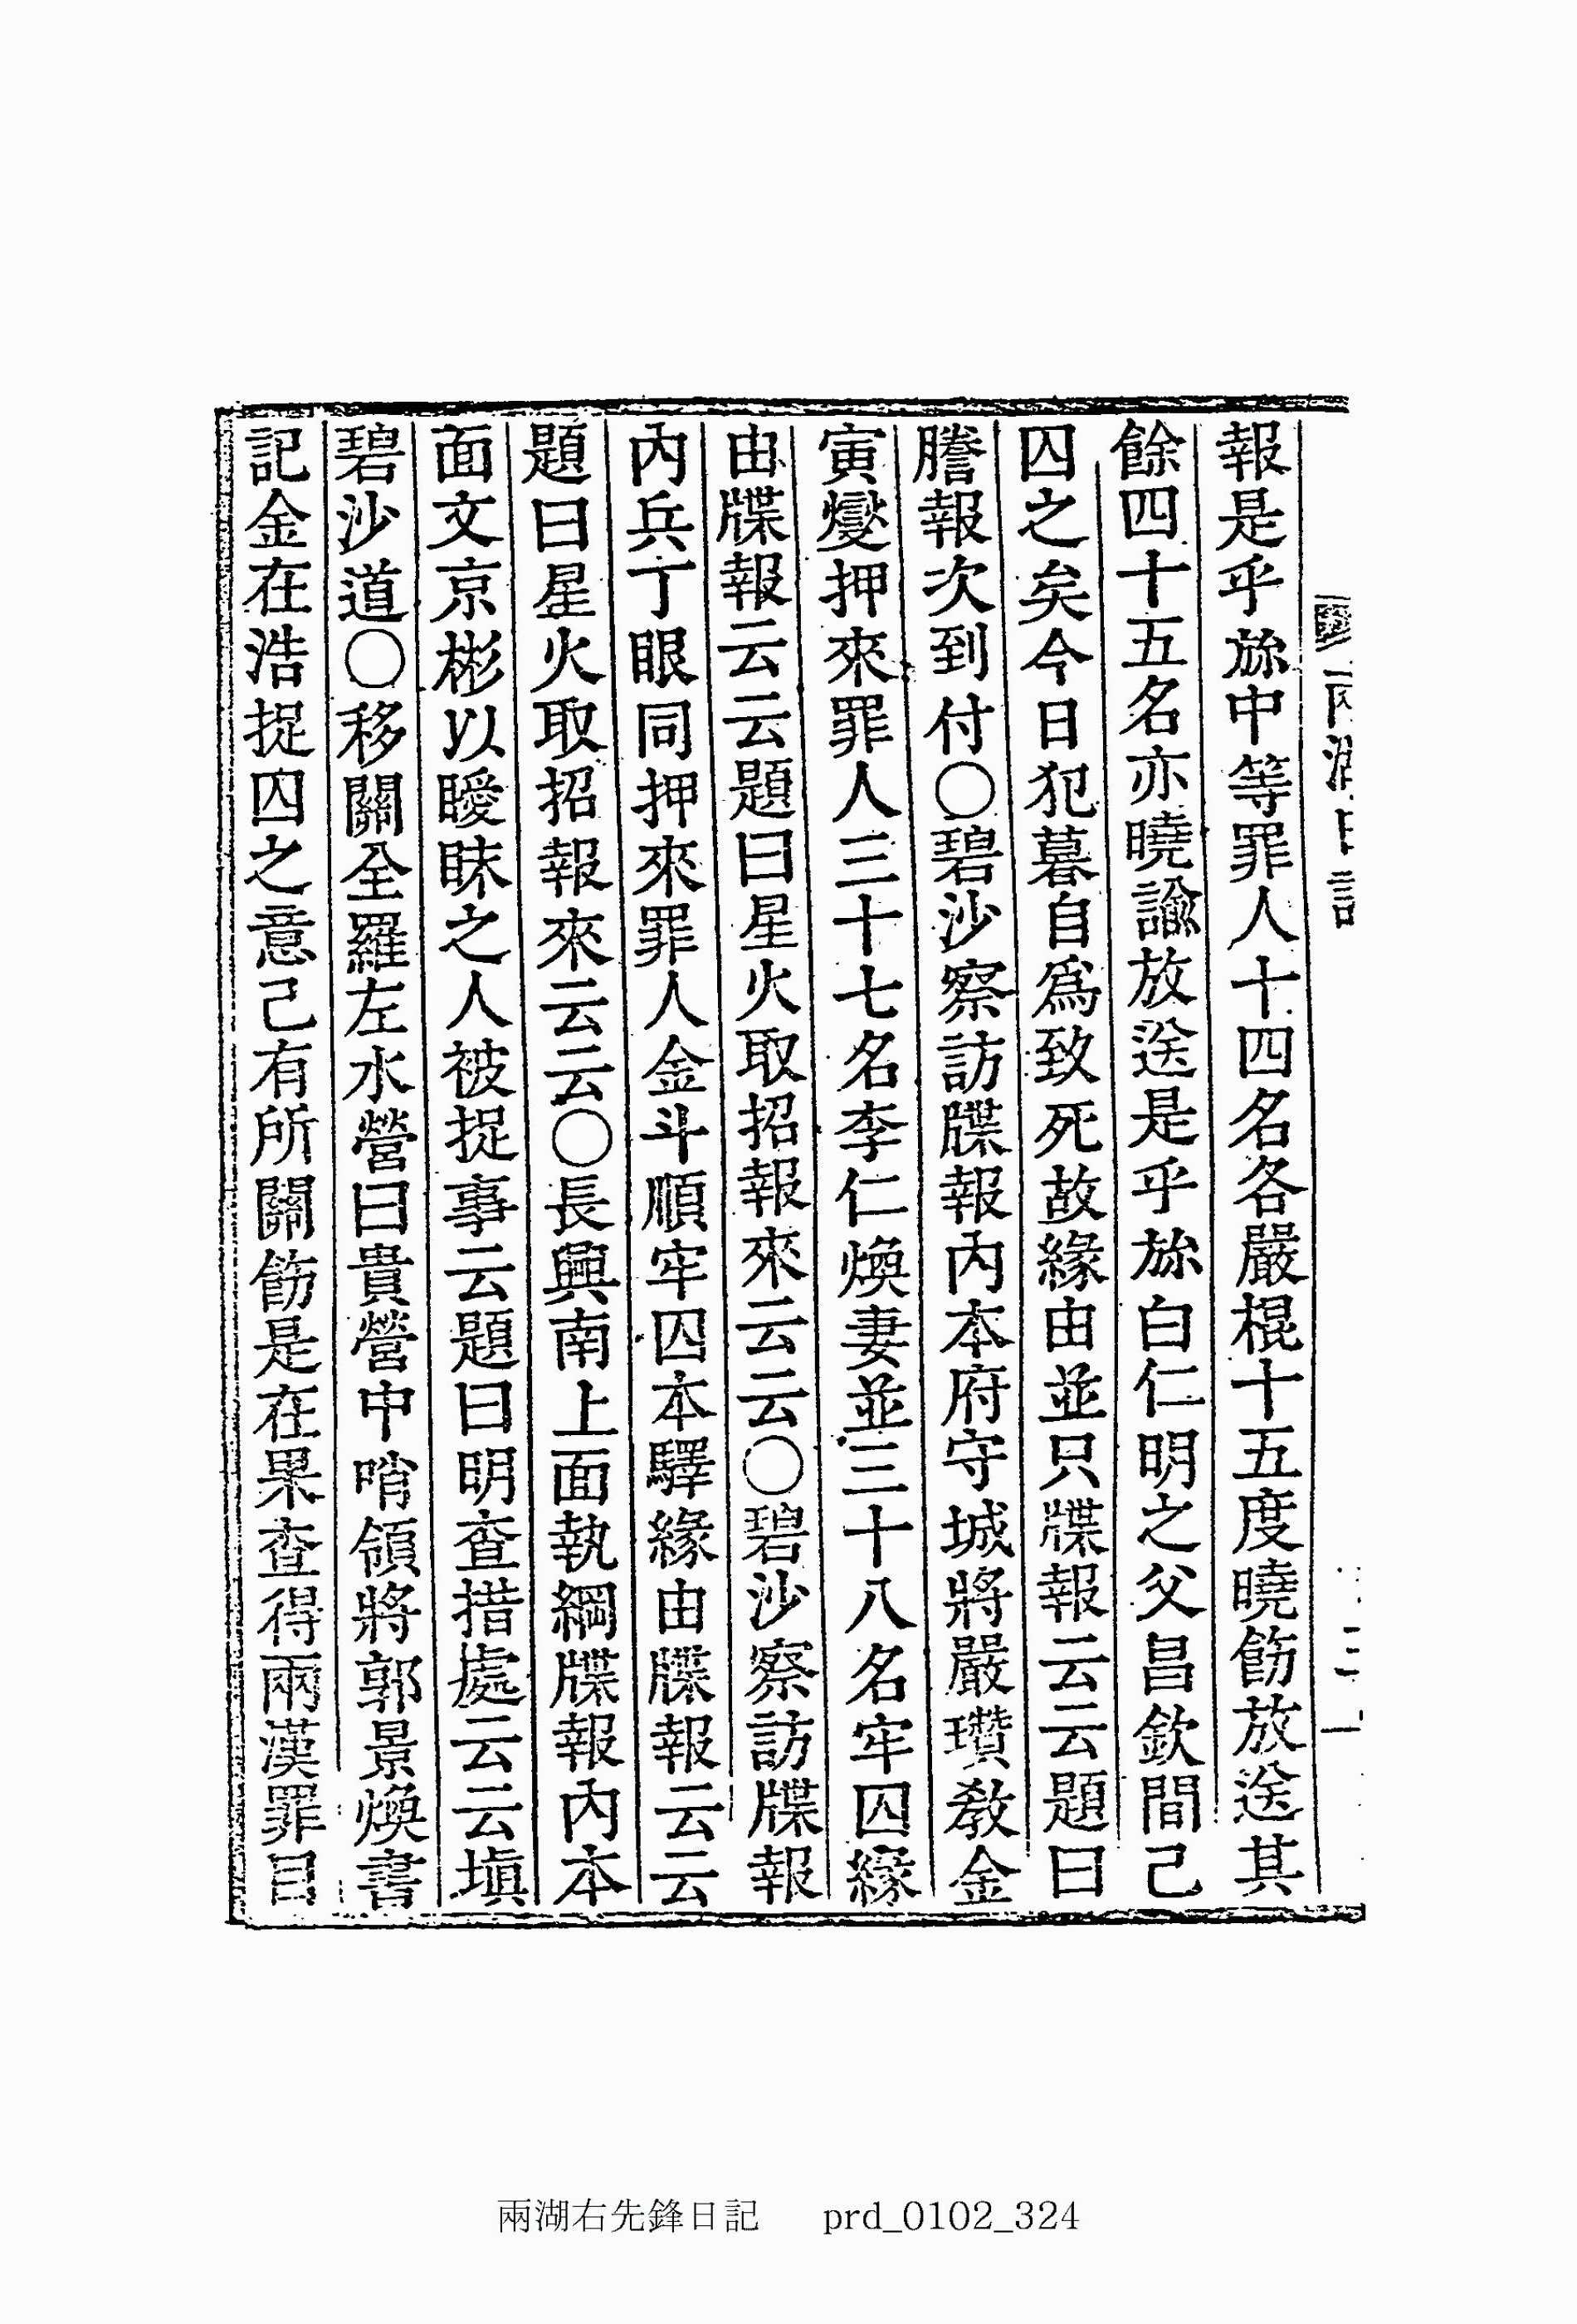 報是乎旀中等罪人十四名各嚴棍十五度曉飭放送其
餘四十五名亦曉諭放送是乎旀白仁明之父昌欽間己
囚之矣今日犯暮自爲致死故緣由並只牒報云云題曰
謄報次到付○碧沙察訪牒報內本府守城將嚴瓚敎金
寅燮押來罪人三十七名李仁煥妻並三十八名牢囚緣
由牒報云云題曰星火取招報來云云○碧沙察訪牒報
內兵丁眼同押來罪人金斗順牢囚本驛緣由牒報云云
題曰星火取招報來云云○長興南上面執綱牒報內本
面文京彬以曖昧之人被捉事云題曰明查措處云云塡
碧沙道○移關全羅左水營曰貴營中哨領將郭景煥書
記金在浩捉囚之意己有所關飭是在果查得兩漢罪目
兩湖右先鋒日記 prd_0102_324